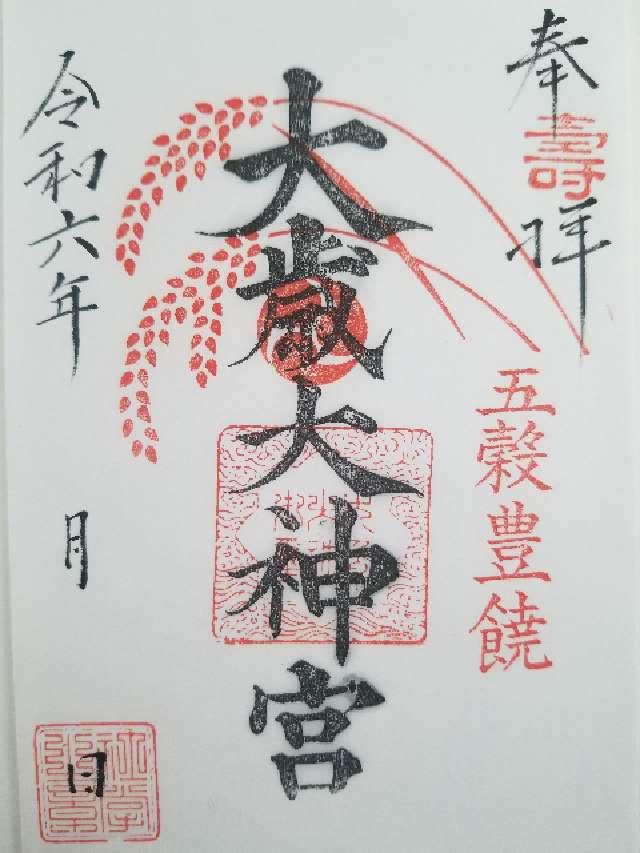 奉拝
壽
五穀豊饒
大歳大神宮
令和六年
月
日